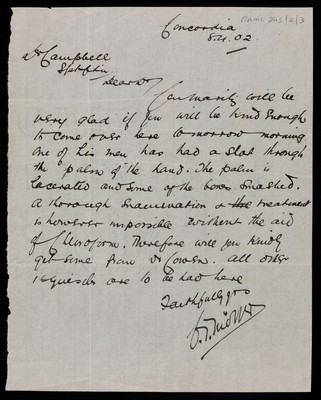 RAMC 245/2/3
Concordia
8.4.02
Dr Campbell
Dear Dr
will be
very glad if you will be kind enough
to come over here tomorrow morning
one of his men has had a shot through
the palm of the hand. The palm is
lacerated and some of the bones smashed.
A thorough examination & the treatment
is however impossible without the aid
of Chloroform. Therefore will you kindly
get some from Dr Cowen. All other
requisites are to be had here
Faithfully yrs